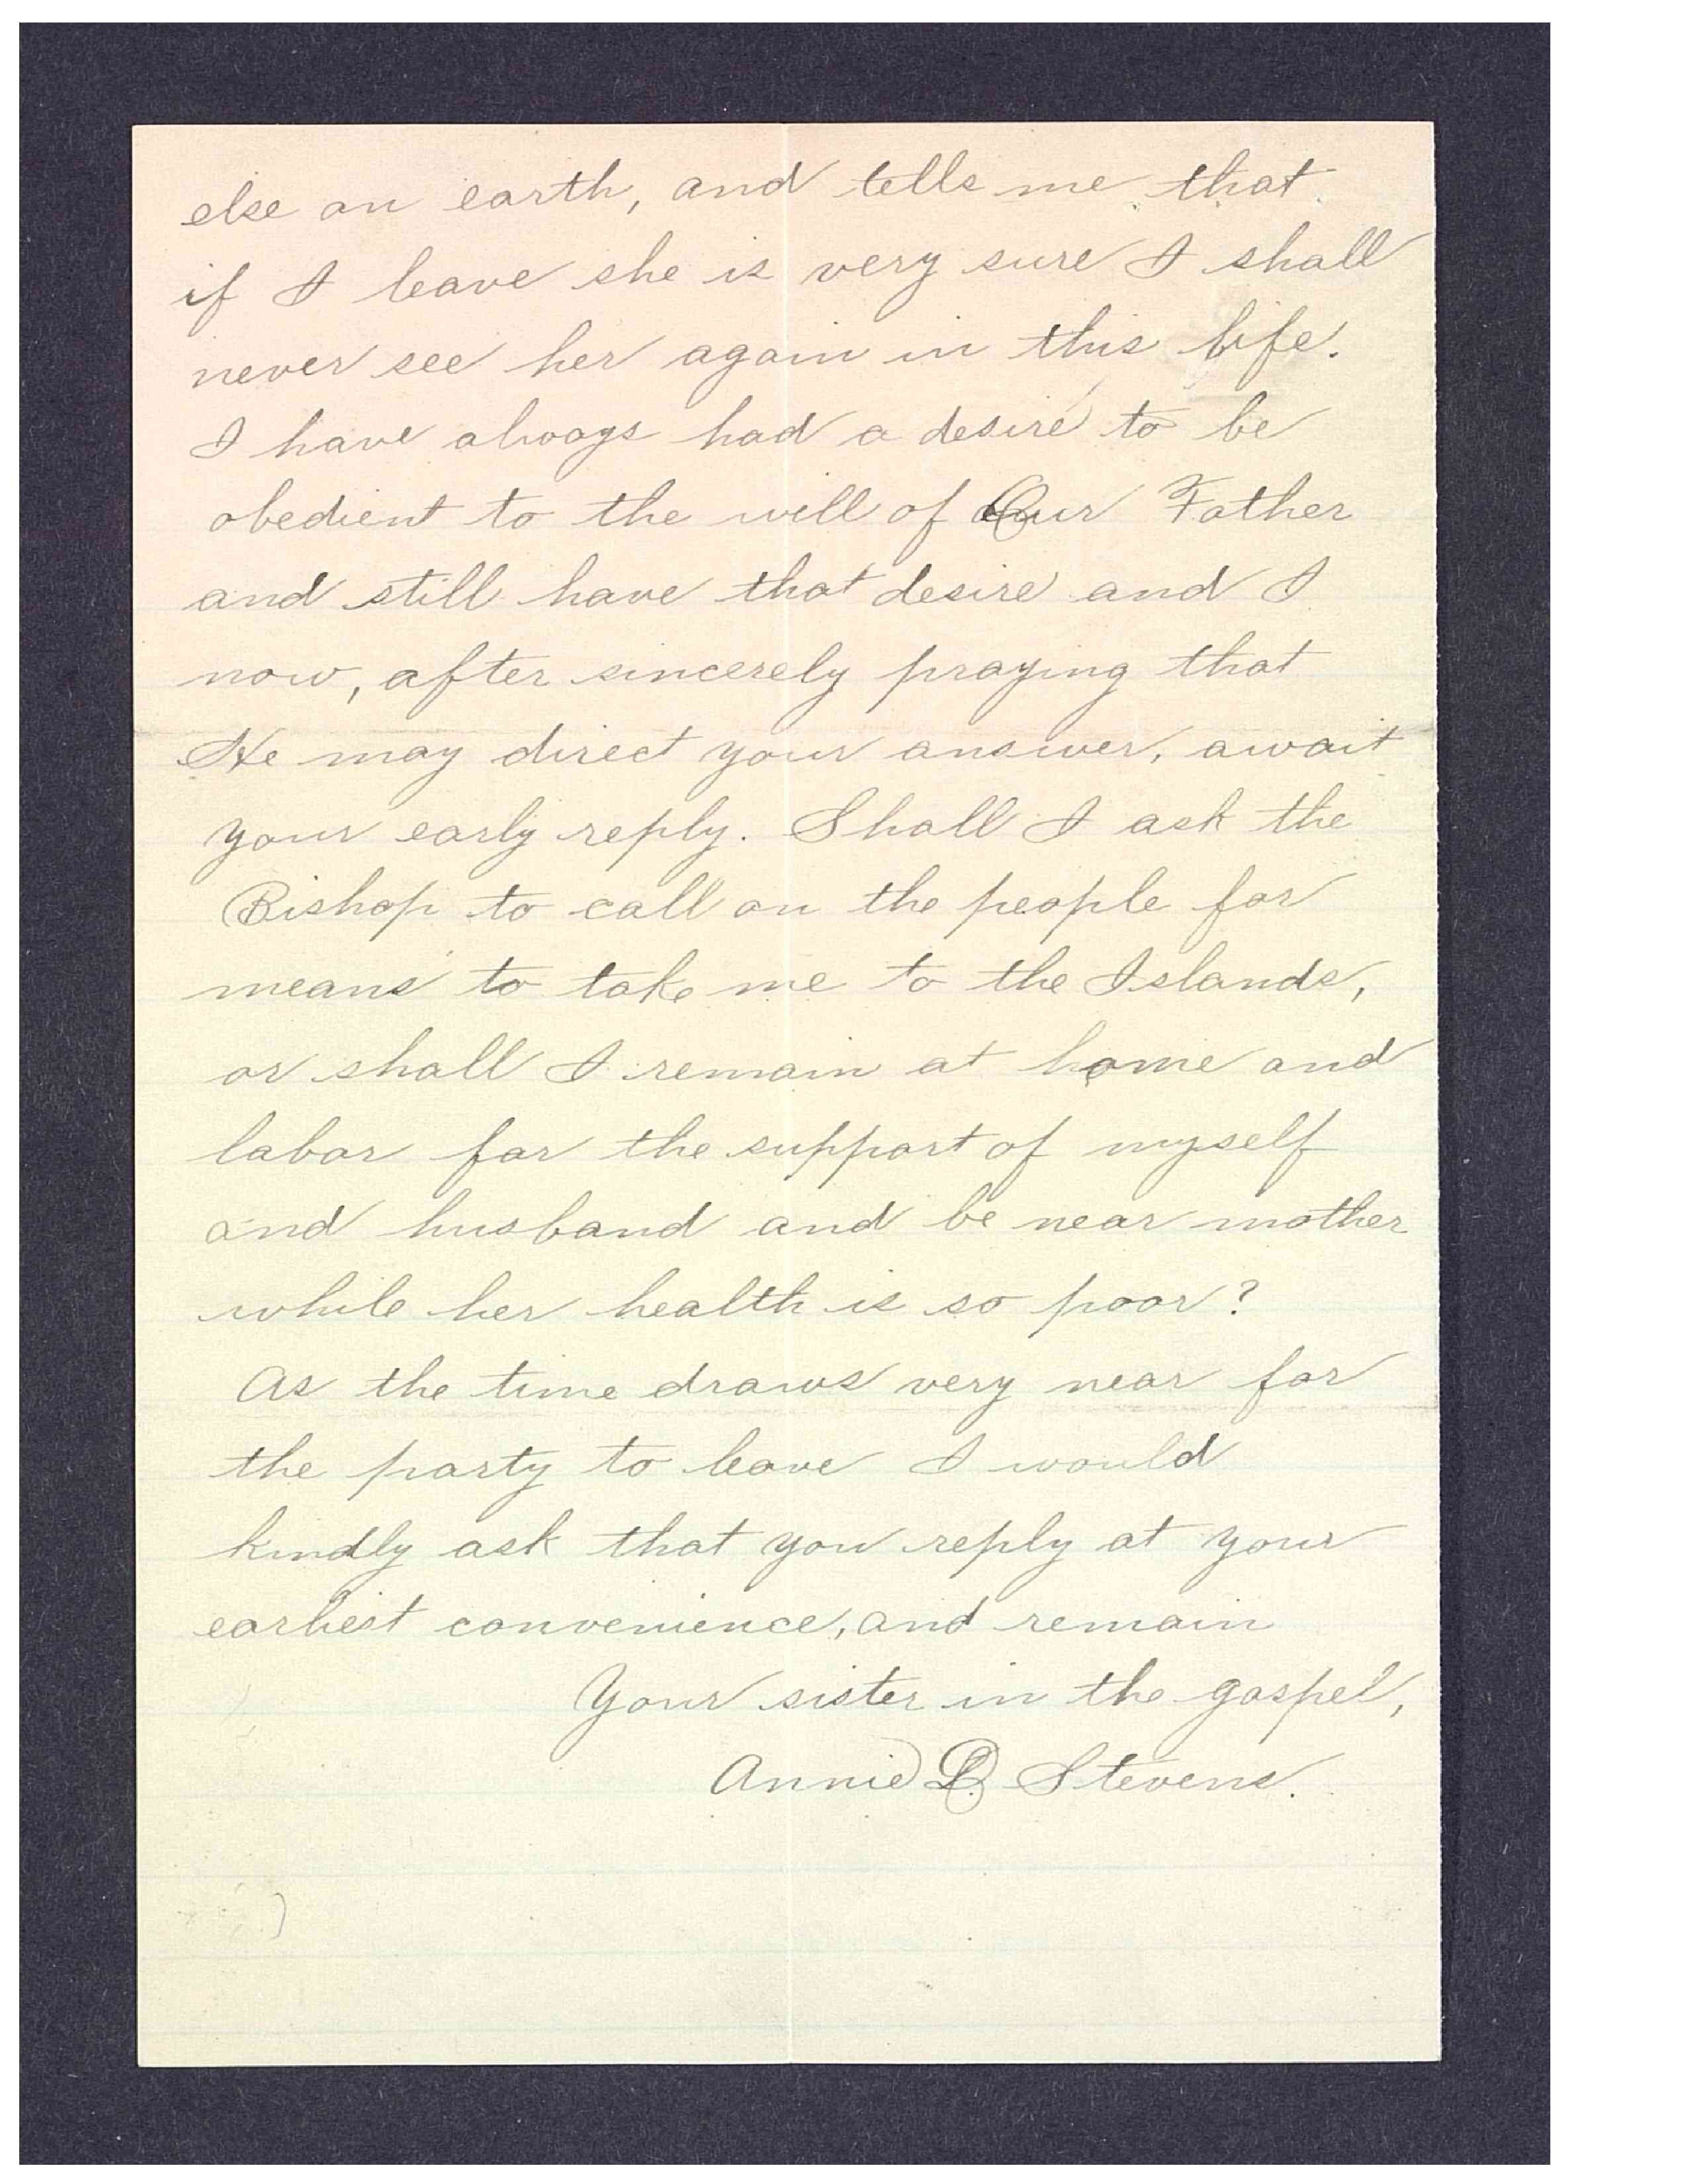 else on earth, and tells me that
if I leave she is very sure I shall
never see her again in this life.
I have always had a desire to be
obedient to the will of Our Father
and still have that desire and I
now, after sincerely praying that
He may direct your answer, await
your early reply. Shall I ask the
Bishop to call on the people for
means to take me to the Islands,
or shall I remain at home and
labor for the support of myself
and husband and be near mother
while her health is so poor?
As the time draws very near for
the party to leave I would
kindly ask that you reply at your
earliest convenience, and remain
Your sister in the gospel,
Annie D Stevens.